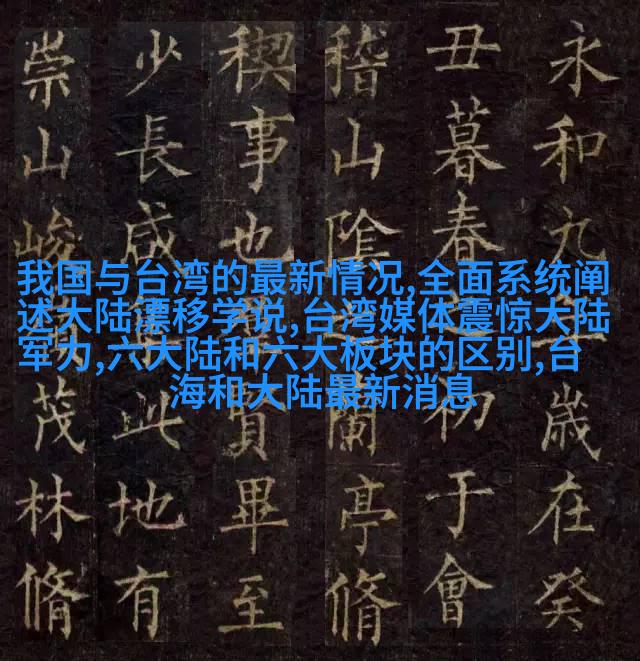 永和九歲在癸
丑暮春初于會
稽山陰蘭亭脩
禊事也賢畢至
少長咸此地有
崇山峻茂林脩
我国与台湾的最新情况,全面系统阐
述大陆漂移学说,台湾媒体震惊大陆
军力,六大陆和六大板块的区别,台
海和大陆最新消息